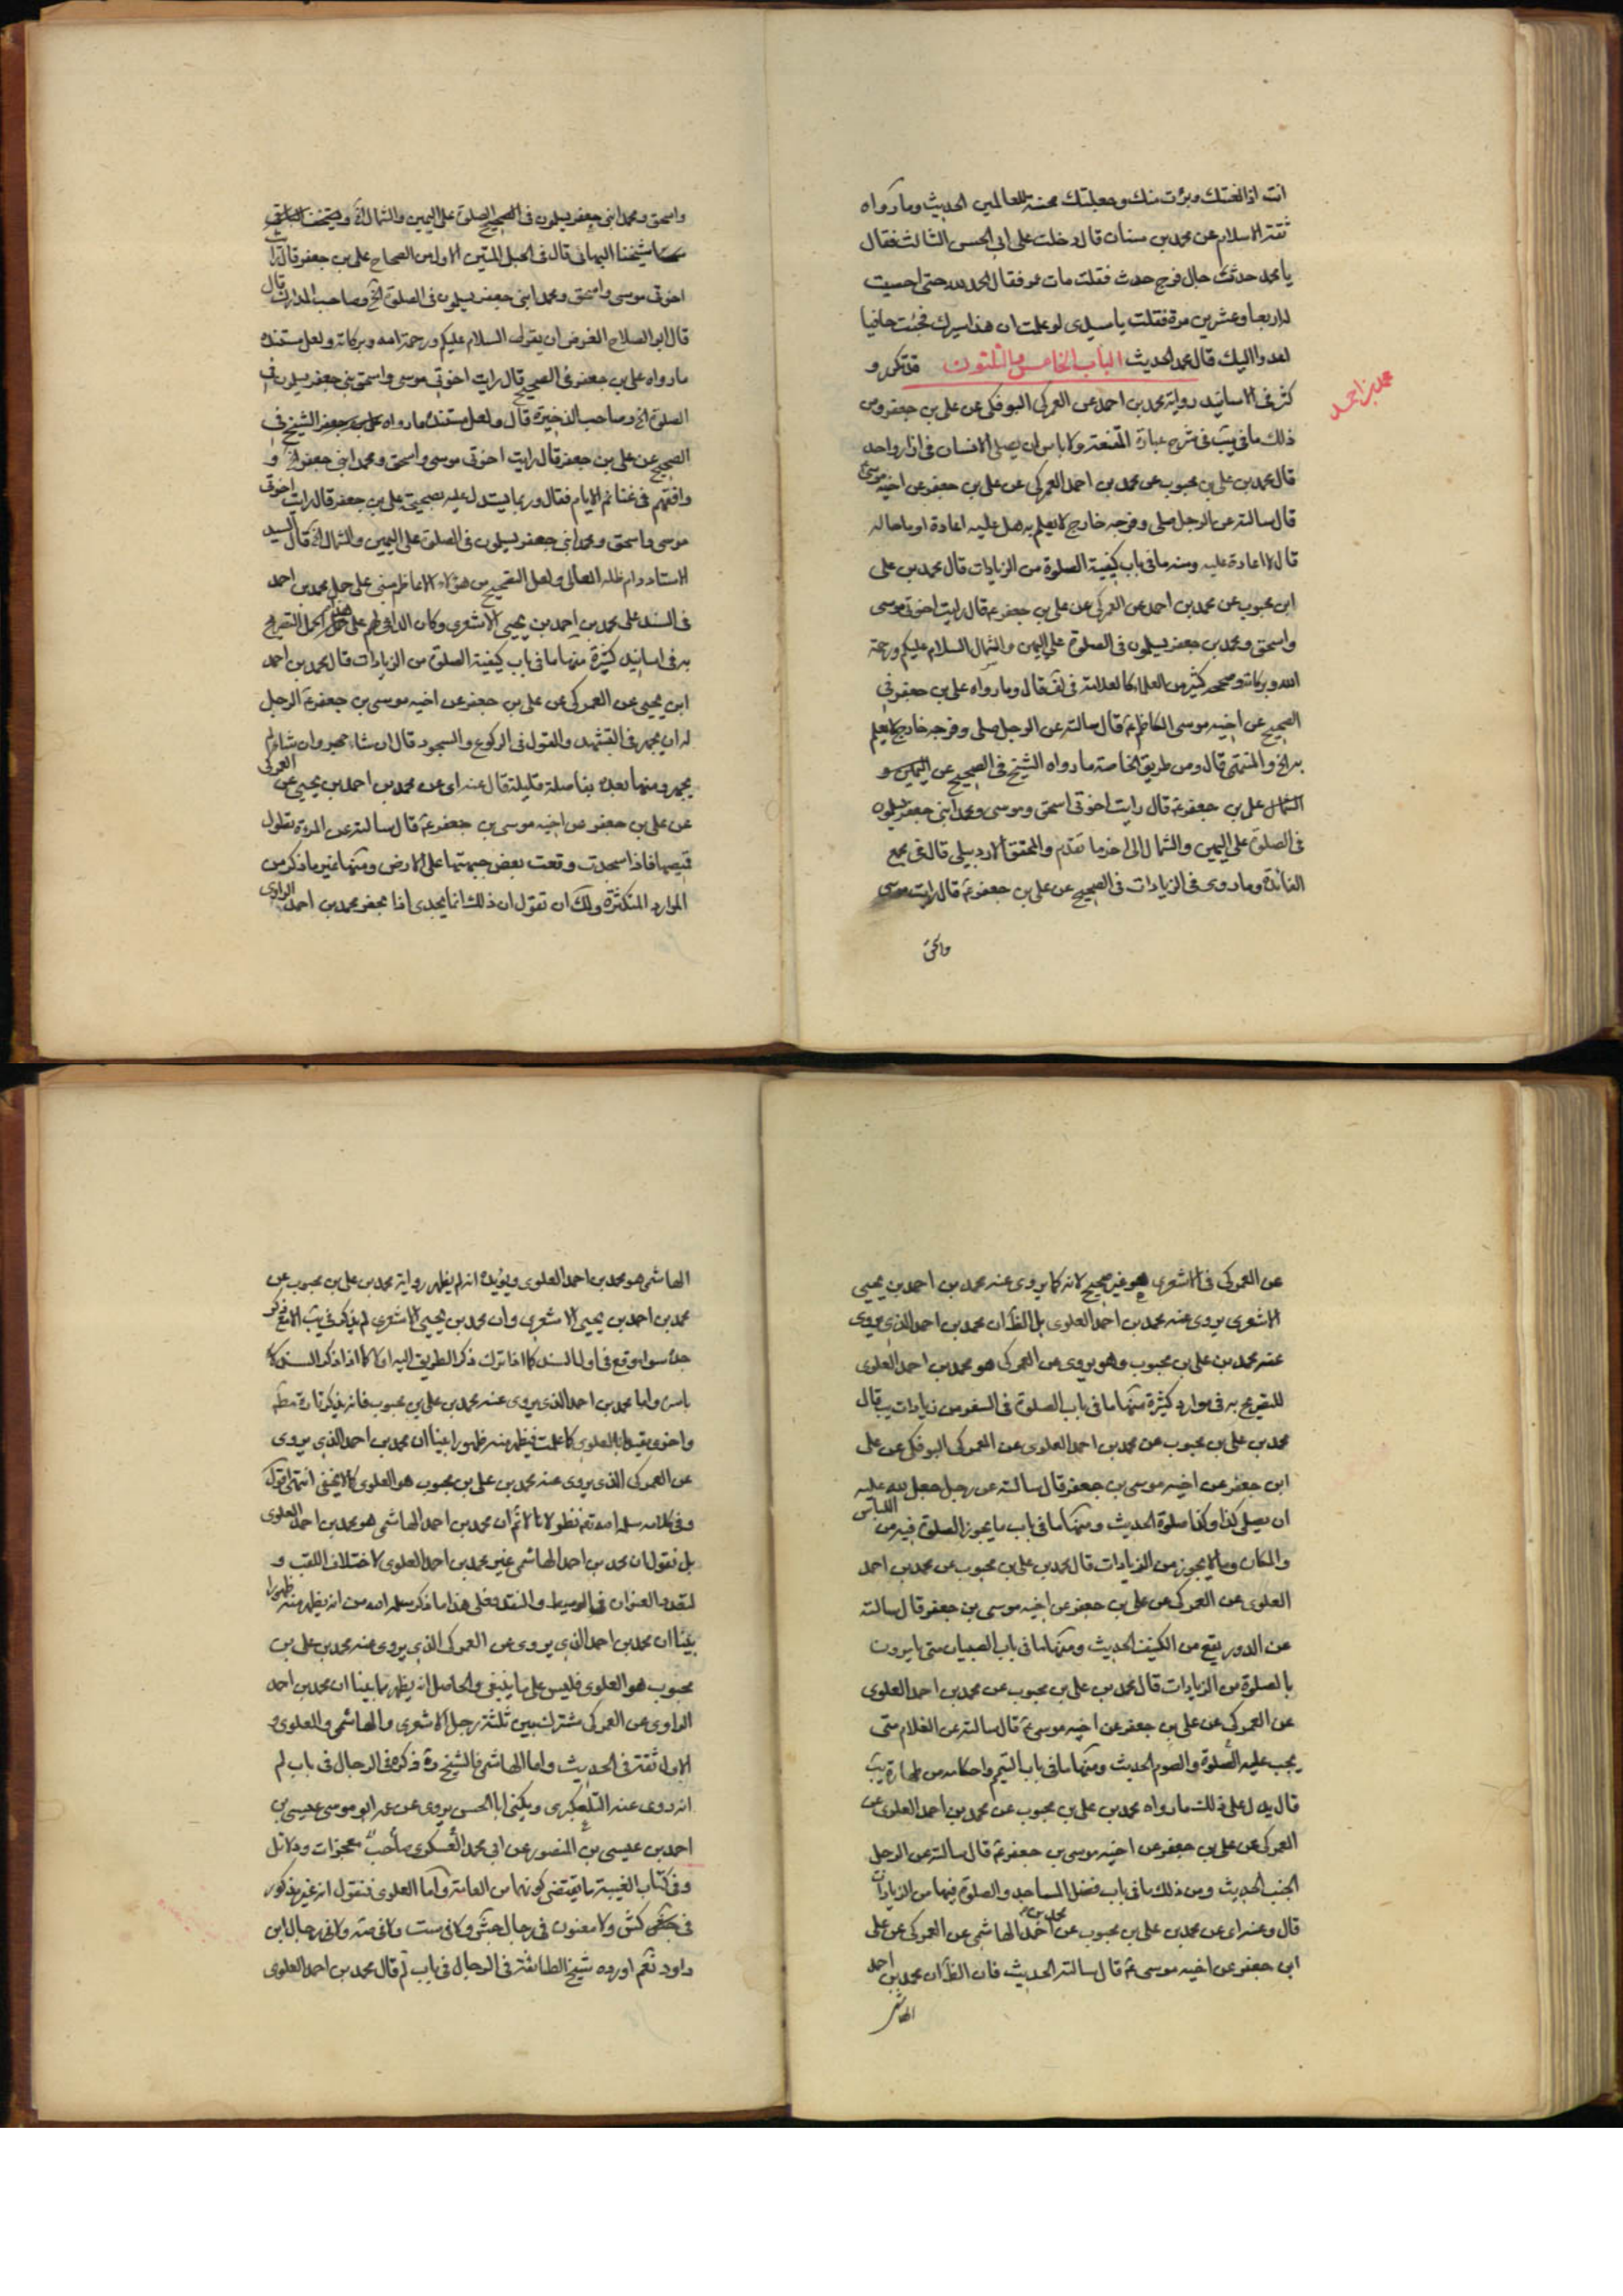 انت اذا لعنتك وبرئت منك وجعلتك محنة للعالمين الحديث وما رواه
ثقة الاسلام عن محمد بن سنان قال دخلت على ابي الحسن الثالث فقال
يا محمد حدث بال فرج حدث فقلت مات عمر فقال الحمد لله حتى احصيت
له اربعا وعشرين مرة فقلت يا سيدى لو علمت ان هذا يسرك لجئت حافيا
اعدوا اليك قال محمد الحديث الباب الخامس والثلثون قد تكرر و
محمد بن احمد
كثر في الاسانيد رواية محمد بن احمد عن العمركى البوفكى عن على بن جعفر ومن
ذلك ما في يب في شرح عبارة المقنعة ولا باس ان يصلى الانسان في ازار واحد
قال محمد بن على بن محبوب عن محمد بن احمد العمركى عن على بن جعفر عن اخيه موسى
قال سالته عن الرجل صلى وفرجه خارج لا يعلم به هل عليه اعادة او ما حاله
قال لا اعادة عليه ومنه ما في باب كيفية الصلوة من الزيادات قال محمد بن على
ابن محبوب عن محمد بن احمد عن العمركى عن على بن جعفر ع قال رايت اخوتى موسى
واسحق ومحمد بن جعفر يسلمون في الصلوة على اليمين والشمال السلام عليكم ورحمة
الله وبركاته وصححه كثير من العلماء كالعلامة في لف قال وما رواه على بن جعفر في
الصحيح عن اخيه موسى الكاظم ع قال سالته عن الرجل صلى وفرجه خارج لا يعلم
به الخ والمنتهى قال ومن طريق الخاصة ما رواه الشيخ في الصحيح عن اليمين و
الشمال على بن جعفر ع قال رايت اخوتى اسحق وموسى ومحمد ابنى جعفر يسلمون
في الصلوة على اليمين والشمال الى اخر ما تقدم والمحقق الاردبيلى قال في مجمع
الفائدة وما روى في الزيادات في الصحيح عن على بن جعفر ع قال رايت موسى
واسحق
واسحق ومحمد ابنى جعفر يسلمون في الصلوة على اليمين والشمال الخ
شيخنا البهائى قال في الحبل المتين الاول من الصحاح على بن جعفر قال رايت
اخوتى موسى واسحق ومحمد ابنى جعفر يسلمون في الصلوة الخ وصاحب المدارك قال
قال ابو الصلاح الفرض ان يقول السلام عليكم ورحمة الله وبركاته ولعل مستنده
ما رواه على بن جعفر في الصحيح قال رايت اخوتى موسى واسحق بنى جعفر يسلمون في
الصلوة الخ وصاحب الذخيرة قال ولعل مستنده ما رواه على بن جعفر الشيخ في
الصحيح عن على بن جعفر قال رايت اخوتى موسى واسحق ومحمد ابنى جعفر الخ و
وافقهم في غنائم الايام فقال وربما يستدل عليه بصحيحة على بن جعفر قال رايت اخوتى
موسى واسحق ومحمد ابنى جعفر يسلمون في الصلوة على اليمين والشمال الخ قال السيد
الاستاد دام ظله العالى ولعل التصحيح من هؤلاء الاعاظم مبنى على حمل محمد بن احمد
في السند على محمد بن احمد بن يحيى الاشعرى وكان الداعى لهم على هذا الحمل التصريح
به في اسانيد كثيرة منها ما في باب كيفية الصلوة من الزيادات قال محمد بن احمد
ابن يحيى عن العمركى عن على بن جعفر عن اخيه موسى بن جعفر ع الرجل
له ان يجهر في التشهد والقول في الركوع والسجود قال ان شاء جهر وان شاء لم
يجهر ومنها بعده بفاصلة قليلة قال عنه اى عن محمد بن احمد بن يحيى عن العمركى
عن على بن جعفر عن اخيه موسى بن جعفر ع قال سالته عن المرءة تطول
قصتها فاذا سجدت وقعت بعض جبهتها على الارض ومنها غير ما ذكر من
الموارد المتكثرة ولك ان تقول ان ذلك انما يجدى اذا محمد بن احمد الراوى
عن العمركى في الاشعرى هو غير صحيح لانه كما يروى عنه محمد بن احمد بن يحيى
الاشعرى يروى عنه محمد بن احمد العلوى بل الظ ان محمد بن احمد الذى يروى
عنه محمد بن على بن محبوب وهو يروى عن العمركى هو محمد بن احمد العلوى
للتصريح به في موارد كثيرة منها ما في باب الصلوة في السفر من زيادات يب قال
محمد بن على بن محبوب عن محمد بن احمد العلوى عن العمركى البوفكى عن على
ابن جعفر عن اخيه موسى بن جعفر قال سالته عن رجل جعل لله عليه
ان يصلى كذا وكذا صلوة الحديث ومنها ما في باب ما يجوز الصلوة فيه من اللباس
والمكان وما لا يجوز من الزيادات قال محمد بن على بن محبوب عن محمد بن احمد
العلوى عن العمركى عن على بن جعفر عن اخيه موسى بن جعفر قال سالته
عن الدود يقع من الكنيف الحديث ومنها ما في باب الصبيان متى يامرون
بالصلوة من الزيادات قال محمد بن على بن محبوب عن محمد بن احمد العلوى
عن العمركى عن على بن جعفر عن اخيه موسى ع قال سالته عن الغلام متى
يجب عليه الصلوة والصوم الحديث ومنها ما في باب التيمم واحكامه من طهارة يب
قال يدل على ذلك ما رواه محمد بن على بن محبوب عن محمد بن احمد العلوى عن
العمركى عن على بن جعفر عن اخيه موسى بن جعفر ع قال سالته عن الرجل
الجنب الحديث ومن ذلك ما في باب فضل المساجد والصلوة فيها من الزيادات
قال وعنه اى عن محمد بن على بن محبوب عن محمد بن احمد الهاشمى عن العمركى عن على
ابن جعفر عن اخيه موسى ع قال سالته الحديث فان الظ ان محمد بن احمد
الهاشمى
الهاشمى هو محمد بن احمد العلوى ويؤيده انه لم يظهر رواية محمد بن على بن محبوب عن
محمد بن احمد بن يحيى الاشعرى وان محمد بن يحيى الاشعرى لم يذكر في يب الا مع ذكر
جده سواء وقع في اول السند كما اذا ترك ذكر الطريق اليه ام لا كما اذا ذكر السند
باسره واما محمد بن احمد الذى يروى عنه محمد بن على بن محبوب فانه يذكر تارة مطلقا
واخرى بقيد العلوى كما علمت فيظهر منه ظهورا بينا ان محمد بن احمد الذى يروى
عن العمركى الذى يروى عنه محمد بن على بن محبوب هو العلوى كما لا يخفى انتهى اقول
وفي كلامه سلمه الله تع نظر لانا لا نم ان محمد بن احمد الهاشمى هو محمد بن احمد العلوى
بل نقول ان محمد بن احمد الهاشمى غير محمد بن احمد العلوى لاختلاف اللقب و
لتعدد العنوان في الوسيط والنقد فعلى هذا ما ذكره سلمه الله من انه يظهر منه ظهورا
بينا ان محمد بن احمد الذى يروى عن العمركى الذى يروى عنه محمد بن على بن
محبوب هو العلوى فليس على ما ينبغى والحاصل انه يظهر مما بينا ان محمد بن احمد
الراوى عن العمركى مشترك بين ثلثة رجل الاشعرى والهاشمى والعلوى و
الاول ثقة في الحديث واما الهاشمى فالشيخ ره ذكره في الرجال في باب لم
انه روى عنه التلعكبرى ويكنى ابا الحسن يروى عن عمه ابو موسى عيسى بن
احمد بن عيسى بن المنصور عن ابي محمد العسكرى صاحب معجزات ودلائل
وفي كتاب الغيبة ما يقتضى كونهما من العامة واما العلوى فنقول انه غير مذكور
في كش ولا معنون في رجال جش ولا في ست ولا في صه ولا في رجال ابن
داود نعم اورده شيخ الطائفة في الرجال في باب لم قال محمد بن احمد العلوى